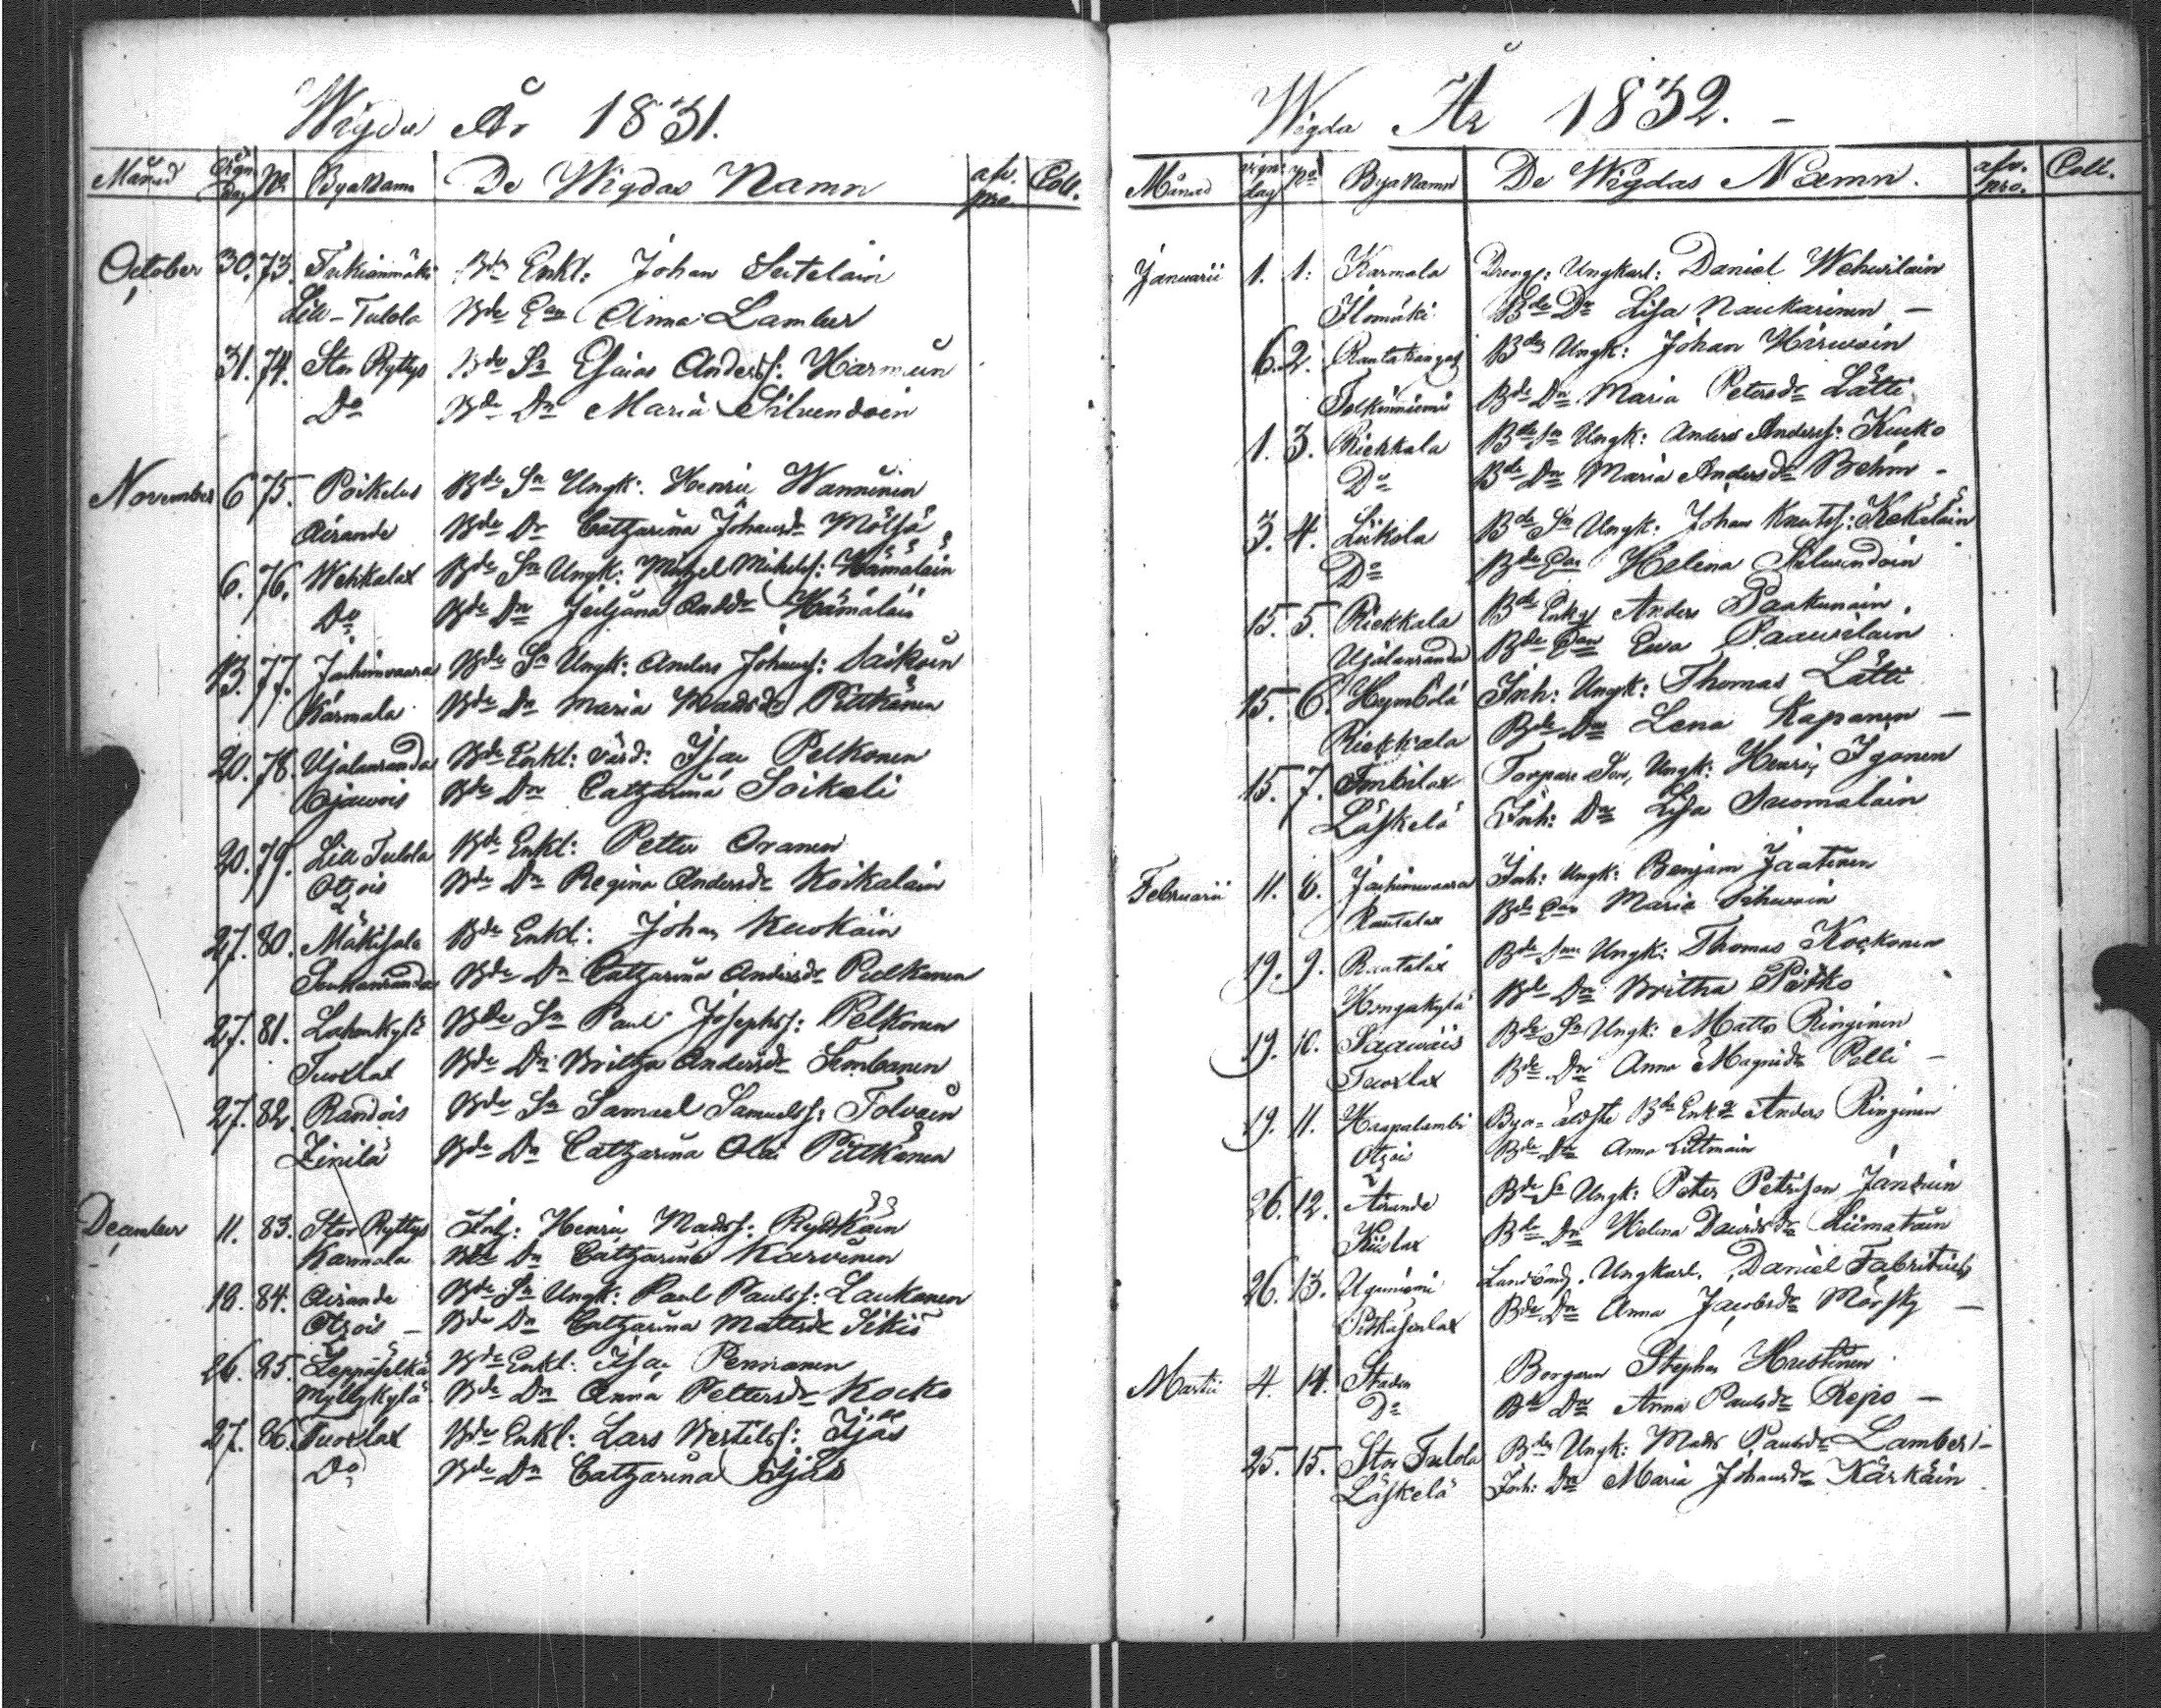 Wigda År 1831.
Månad Wign. Dag No Byanamn De Wigdas Namn afv. pro. Coll.
October 30. 73. Tukianmäki Bde Enkl: Johan Seitelain
Lill-Tulola Bde Ean Anna Lamber
31. 74. Stor Ryttys Bde Sn Esaias Anderss: Harmuin
Do Bde Dn Maria Silvendoin
November 6 75. Poikelus Bde Sn Ungk: Henric Wänninen
Airanda Bde Dn Catharina Johansdr Mölsä
6. 76. Wehkalax Bde Sn Ungk: Michel Michels: Hämäläin
Do Bde Dn Juljana Andsdr Hämäläin
13. 77. Jachimvaara Bde Sn Ungk: Anders Johanss: Saikoin
Karmala Bde Dn Maria Madsdr Pitkänen
20. 78. Ujalanranda Bde Enkl: värd: Isac Pelkonen
Ojavois Bde Dn Catharina Soikeli
20. 79. Lill Tulola Bde Enkl: Petter Oranen
Otsois Bde Dn Regina Andersdr Koikalain
27. 80. Mäkisalo Bde Enkl: Johan Kuokain
Soukanranda Bde Dn Catharina Andersdr Pulkanen
27. 81. Lahenkylä Bde Sn Paul Josephss: Pelkonen
Tuoxlax Bde Dn Britha Andersdr Kombanen
27. 82. Randois Bde Sn Samuel Samuelss: Tolvain
Zinilä Bde Dn Catharina Olai Pitkänen
December 11. 83. Stor Ryttys Inh: Henric Madss: Ryöskäin
Karmala Bde Dn Catharina Karvinen
18. 84. Airanda Bde Sn Ungk: Paul Paulss: Laukanen
Otsois – Bde Dn Catharina Mattsdr Sikiö
26. 85. Leppäselkä Bde Enkl: Isac Pennanen
Myllykylä Bde Dn Anna Pettersdr Kocko
27. 86. Tuoxlax Bde Enkl: Lars Bertilss: Ijäs
Do Bde Dn Catharina Ijäs
Wigda År 1832. –
Månad vign: dag No Byanamn De Wigdas Namn. afv. pro. Coll.
Januarii 1. 1: Karmala Dreng: Ungkarl: Daniel Wehvilain
Ilomäki Bde Dr Lisa Naukarinen –
6. 2. Rautakangas Bdes Ungk: Johan Härwoin
Tolkinniemi Bde Dn Maria Petersdr Lätti
1. 3. Riekkala Bde Sn Ungk: Anders Anderss: Kucko
Do Bde Dn Maria Andersdr Behm –
3. 4. Liikola Bde Sn Ungk: Johan Knutss: Kekäläin
Do Bde Ean Helena Silvendoin
15. 5. Riekkala Bde Enkg Anders Paakunain.
Ujalanranda Bde Ean Ewa Paavilain
15. 6. Hymbölä Inh: Ungk: Thomas Lätti
Riekkala Bde Dn Lena Kapanen –
15. 7. Imbilax Torpare Son, Ungk: Henric Igonen
Läskelä Inh: Dn Lisa Suomalain
Februarii 11. 8. Jachimvaara Inh: Ungk: Benjam Jaatinen
Rautalax Bde Ean Maria Sihvoin
19. 9. Rautalax Bde Sn Ungk: Thomas Kockonen
Hongakylä Bde Dn Britha Pitko
19. 10. Saavais Bde Sn Ungk: Matts Ringinen
Tuoxlax Bde Dn Anna Magnidr Pelli –
19. 11. Haapalambi Bya-äldste Bde Enkg Anders Ringinen
Otsois Bde Dn Anna Littmain
26. 12. Airanda Bde Sn Ungk: Peter Petrison Jantuin
Kiislax Bde Dn Helena Davidsdr Liimatain
26. 13. Uguniemi Landbonde. Ungkarl. Daniel Fabritius
Pitkäsenlax Bde Dn Anna Jacobsdr Mörsky –
Martii 4. 14. Staden Borgaren Stephan Hustinen
Do Bde Dn Anna Paulsdr Repo –
25. 15. Stor Tulola Bdes Ungk: Mats Paulsdr Lamber –
Läskelä Inh: Dn Maria Johansdr Kärkäin